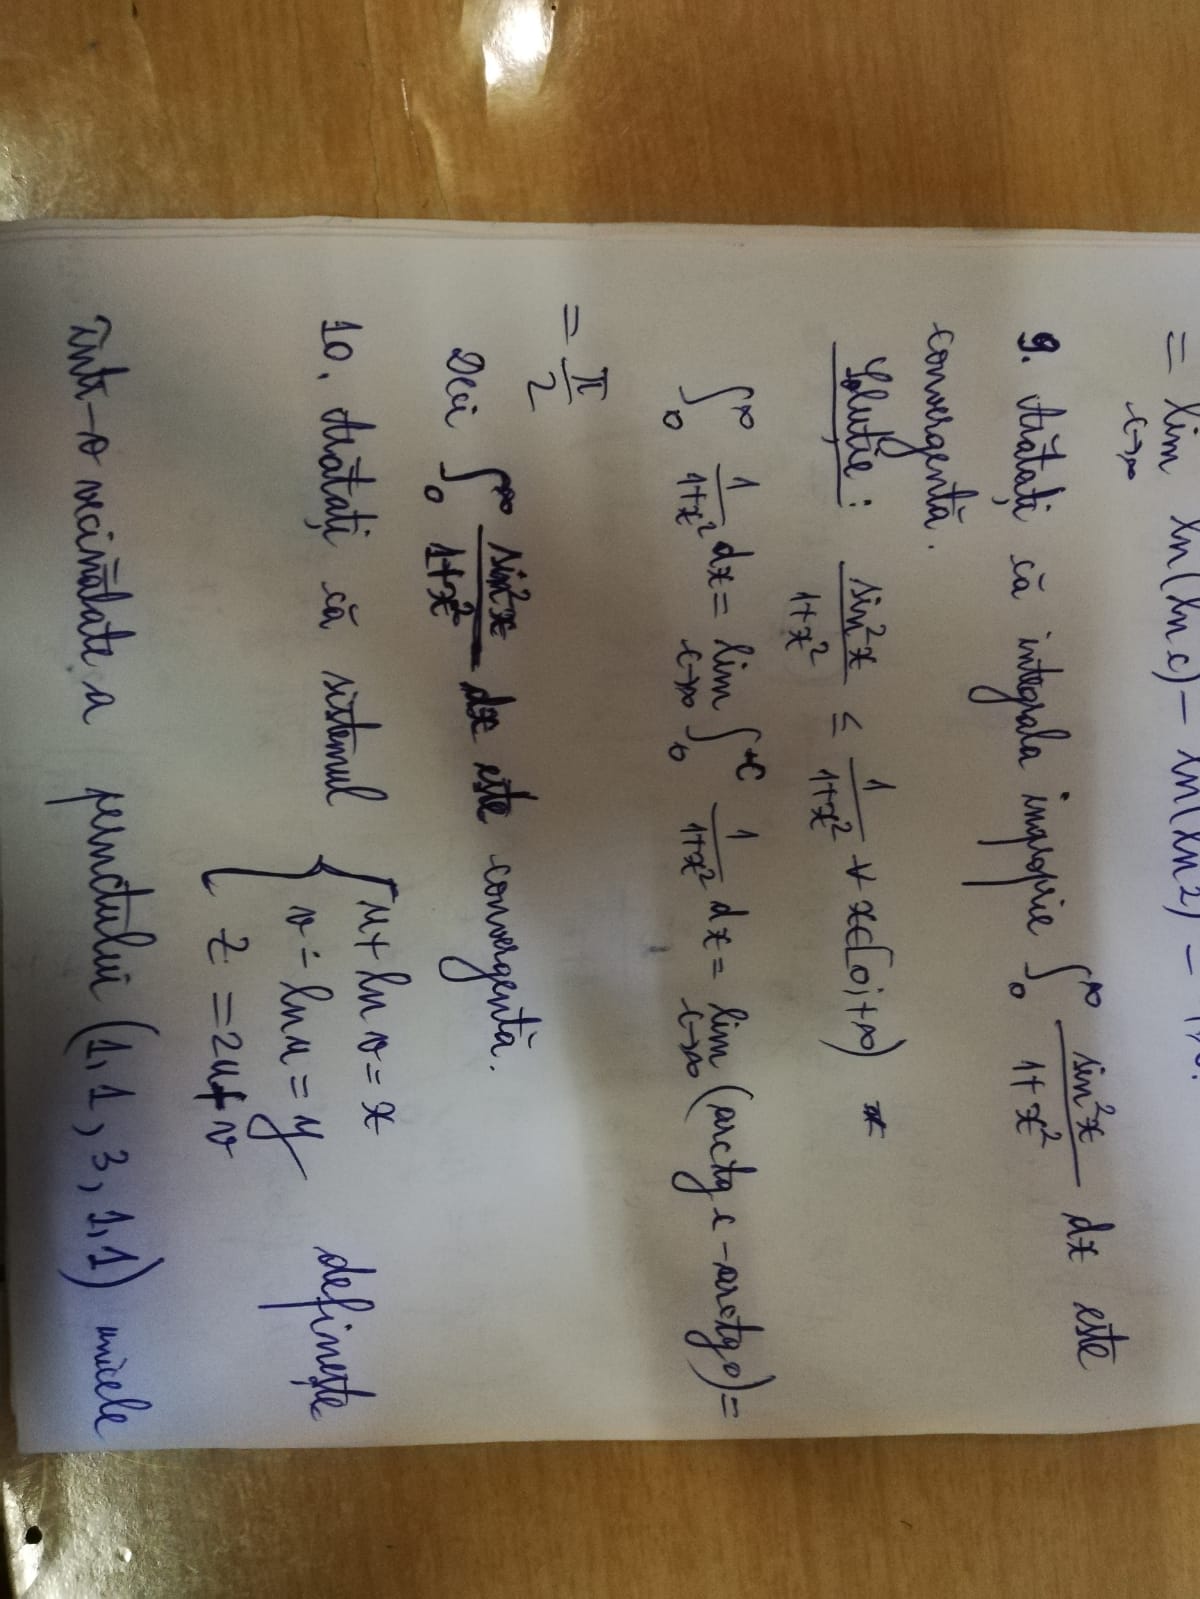 = lim ln(ln c) - ln(ln 2) =
c→∞
9. Arătați că integrala improprie ∫₀^∞ sin²x / (1+x²) dx este
convergentă.
Soluție: sin²x / (1+x²) ≤ 1 / (1+x²) ∀ x∈[0;+∞)
∫₀^∞ 1/(1+x²) dx = lim_{c→∞} ∫₀^{+c} 1/(1+x²) dx = lim_{c→∞} (arctg c - arctg 0) =
= π/2
Deci ∫₀^∞ sin²x / (1+x²) dx este convergentă.
10. Arătați că sistemul { u + ln v = x definește
v - ln u = y
z = 2u + v
într-o vecinătate a punctului (1, 1, 3, 1, 1) unicele